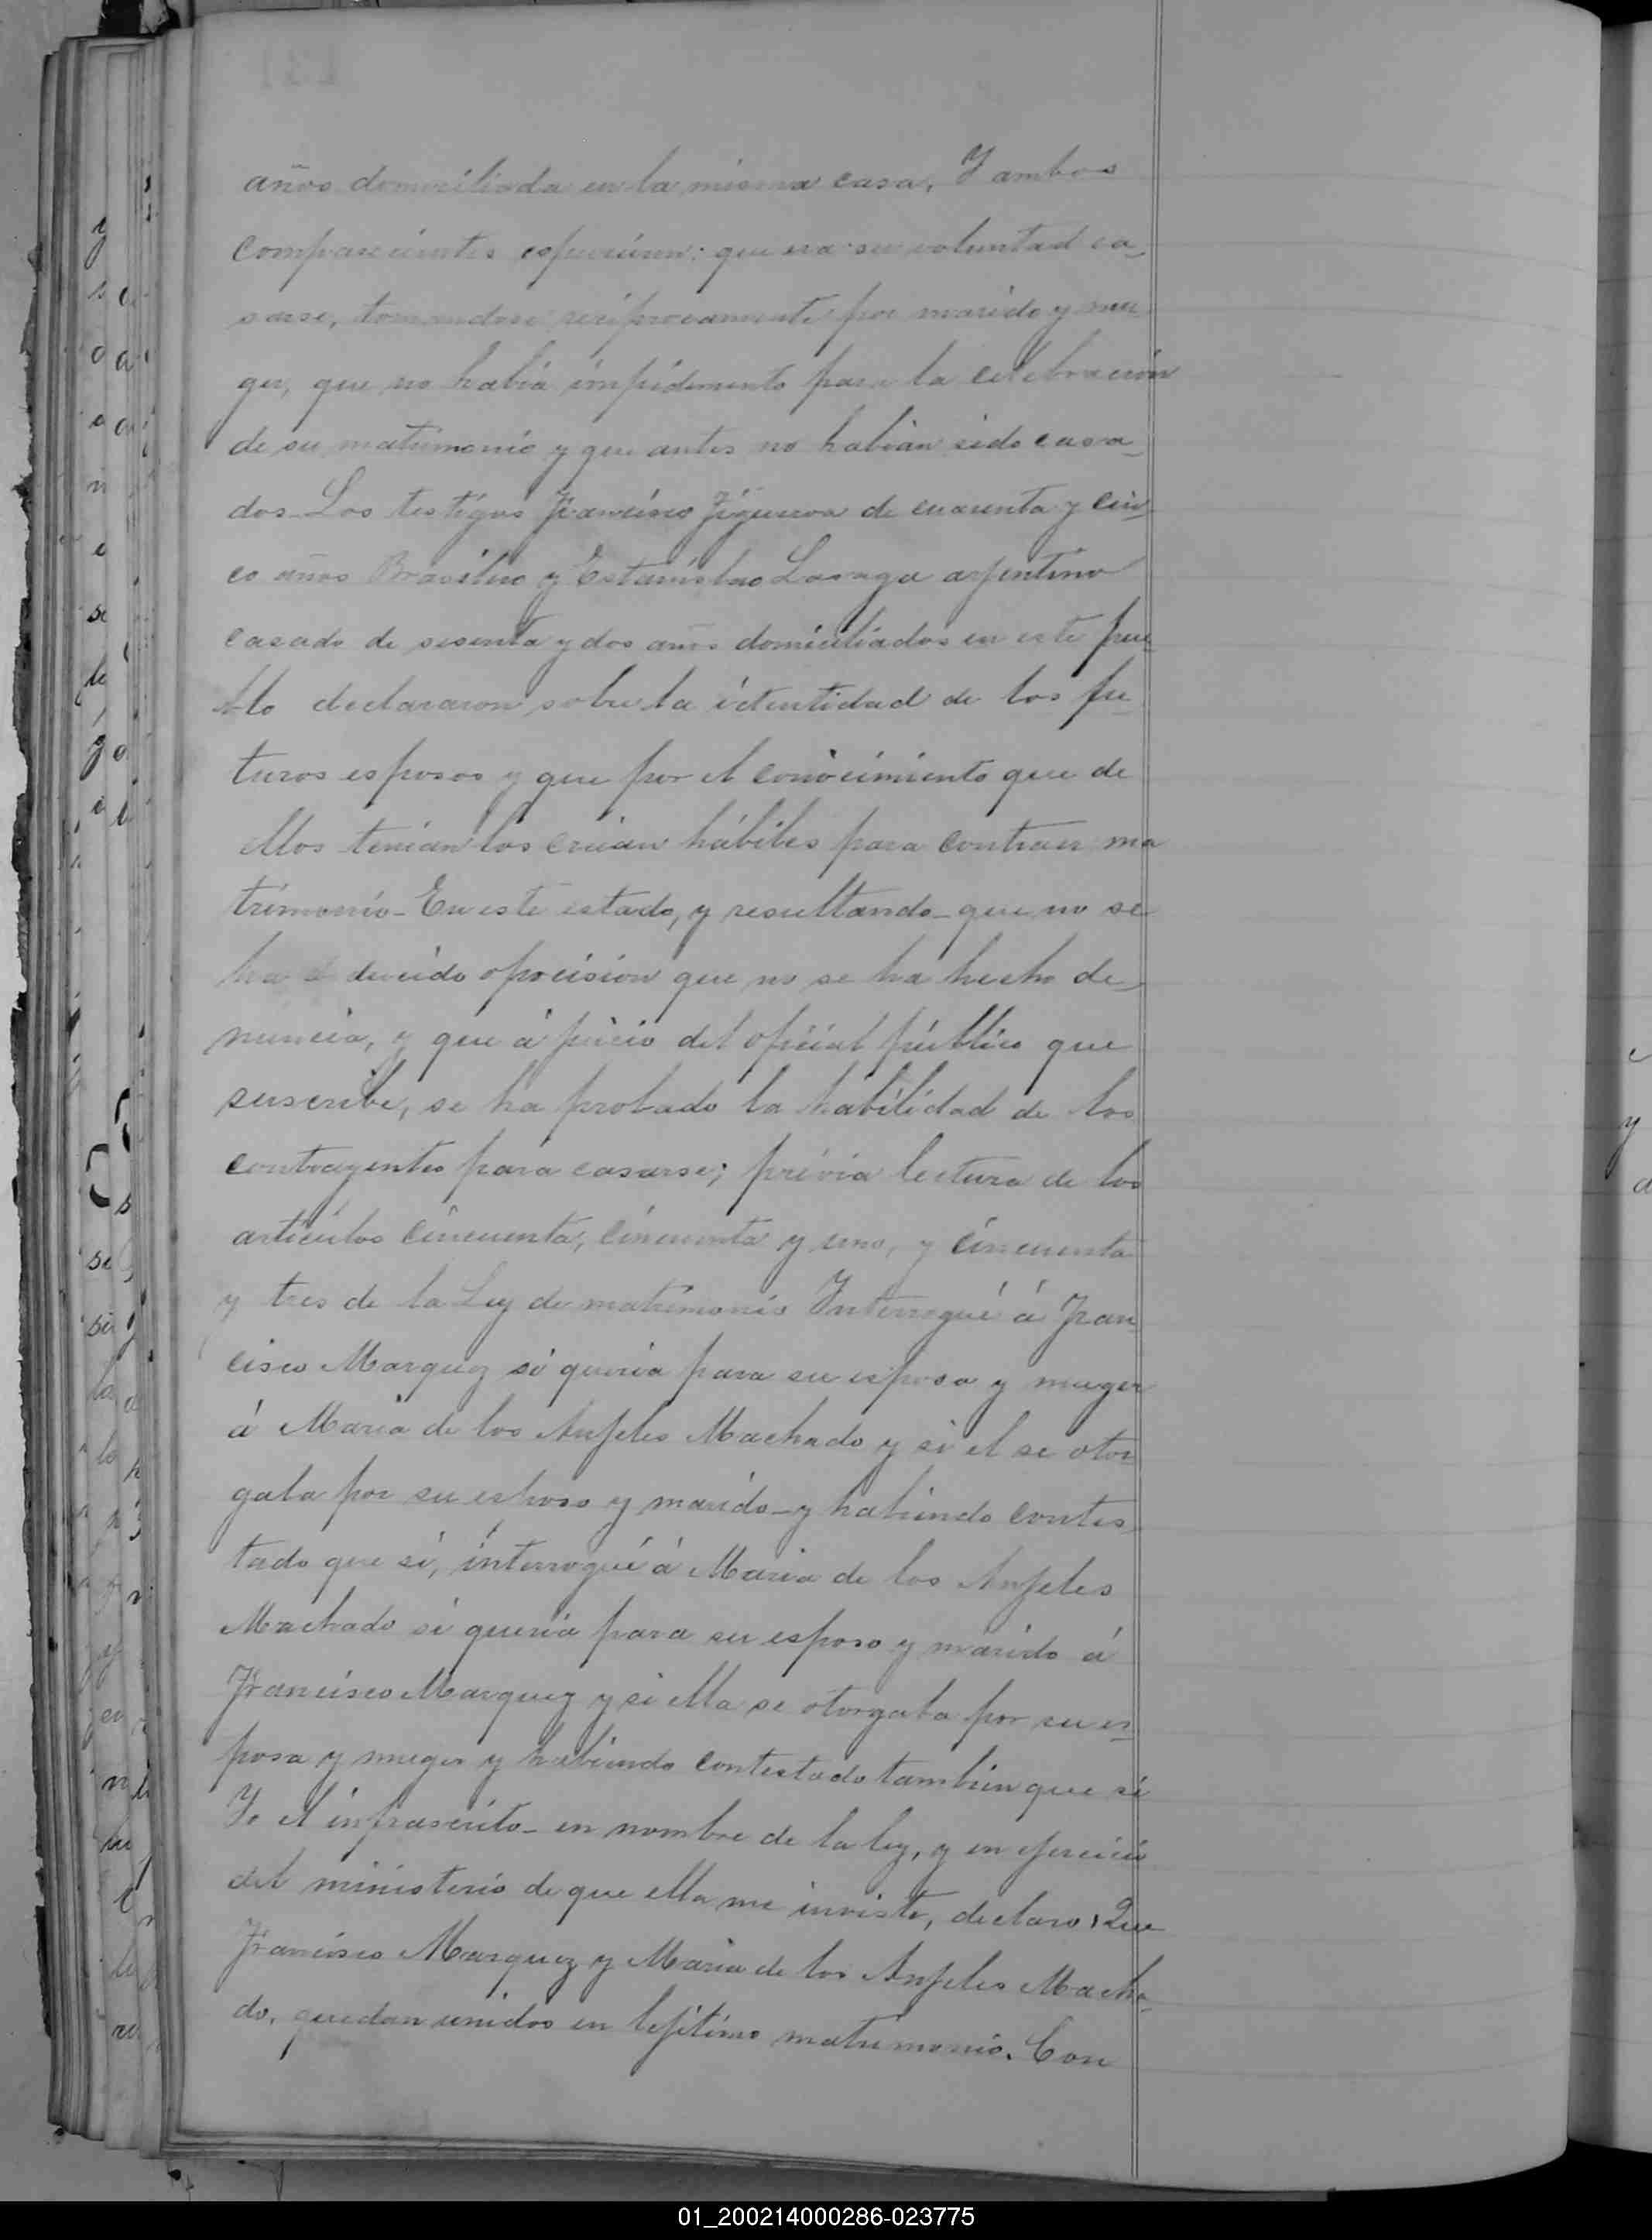 años domiciliada en la misma casa, Y ambos
comparecientes espusieron: que era su voluntad ca-
sarse, tomandose reciprocamente por marido y mu-
ger, que no habia impidimento para la celebracion
de su matrimonio y que antes no habian sido casa-
dos_ Los testigos Francisco Figueroa de cuarenta y cin-
co años Brasilero y Estanislao Lavaga arjentino
casado de sesenta y dos años domiciliados en este pue
blo declararon sobre la identidad de los fu-
turos esposos y que por el conocimiento que de
ellos tenian los creian hábiles para contraer ma
trimonio_ En este estado, y resultando_ que no se
ha deducido oposicion que no se ha hecho de-
nuncia, y que á juicio del oficial público que
suscribe, se ha probado la habilidad de los
contrayentes para casarse; prévia lectura de los
articulos cincuenta, cincuenta y uno, y cincuenta
y tres de la Ley de matrimonio Interrogué á Fran
cisco Marquez si queria para su esposa y muger
á Maria de los Anjeles Machado y si el se otor
gaba por su esposo y marido_ y habiendo contes-
tado que si, interrogué á Maria de los Anjeles
Machado si queria para su esposo y marido á
Francisco Marquez y si ella se otorgaba por su es-
posa y muger y habiendo contestado tambien que si
Yo el infrascrito_ en nombre de la ley, y en ejercicio
del ministerio de que ella me inviste, declaro: Que
Francisco Marquez y Maria de los Anjeles Macha-
do, quedan unidos en lejitimo matrimonio. Con
01_200214000286-023775